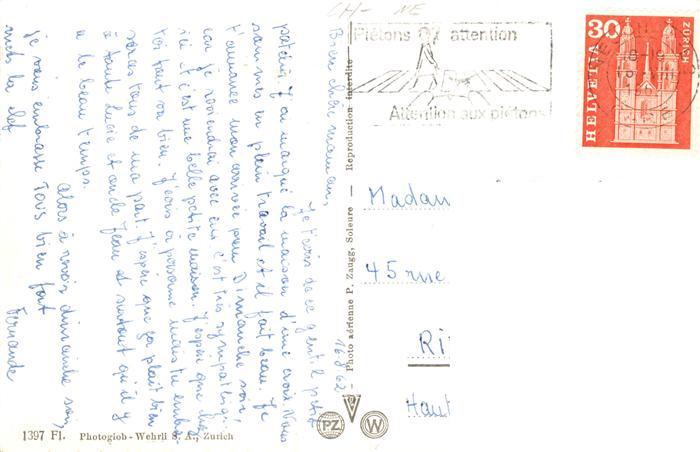 CH- NE
Piétons attention
Attention aux piétons
30
HELVETIA
ZÜRICH
16.8.62
Bien chère maman,
J'écris de ce gentil petit
patelin. J'ai marqué la maison d'une croix. Nous
sommes en plein travail et il fait beau. Je
t'annonce mon arrivée pour Dimanche soir,
car je reviendrai avec eux c'est très sympathique
ici et c'est une belle petite maison. J'espère que chez
toi tout va bien. J'écris à personne mais tu embras-
seras tous de ma part. J'espère que ça plait bien
à tante Lucie et oncle Jean et surtout qu'il y
a le beau temps.
Alors à revoir dimanche soir,
je vous embrasse tous bien fort
mets la clef
Fernande
Photo aérienne P. Zaugg, Soleure — Reproduction interdite
Madam
45 rue
Ri
Haut
PZ
W
1397 Fl. Photoglob-Wehrli S. A., Zurich